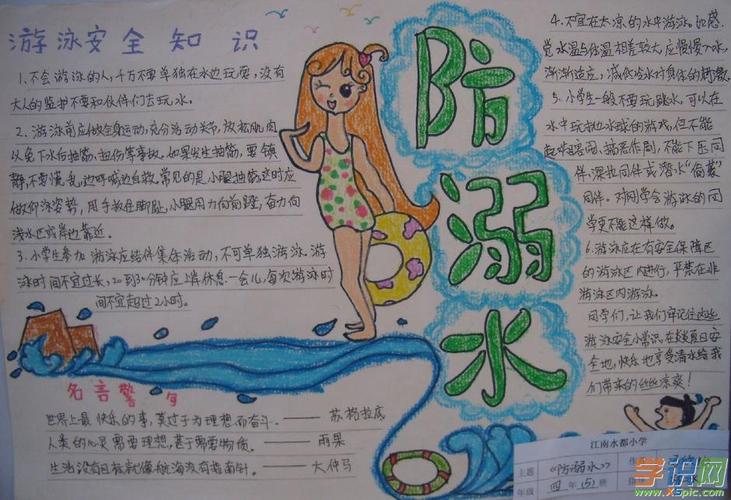 游泳安全知识
1.不会游泳的人,千万不要单独在水边玩耍,没有
大人的监护不要和伙伴们去玩水。
2.游泳前应做全身运动,充分活动关节,放松肌肉
以免下水后抽筋、扭伤等事故。如果发生抽筋,要镇
静,不要慌乱,边呼喊边自救。常见的是小腿抽筋这时应
做仰泳姿势,用手扳住脚趾,小腿用力向前蹬,奋力向
浅水区或岸边靠近。
3.小学生参加游泳应结伴集体活动,不可单独游泳。游
泳时间不宜过长,20到30分钟应上岸休息一会儿,每次游泳时
间不宜超过2小时。
名言警句
世界上最快乐的事,莫过于为理想而奋斗。——苏格拉底
人类的心灵需要理想,甚于需要物质。——雨果
生活没有目标就像航海没有指南针。——大仲马
防
溺
水
4.不宜在太凉的水中游泳。如感
觉水温与体温相差较大,应慢慢入水,
渐渐适应,减低冷水对身体的刺激。
5.小学生一般不要玩跳水,可以在
水中玩抛水球的游戏,但不能
起哄
搞恶作剧,不能下压同
伴,深拉同伴或潜水"偷袭"
同伴。对同学会游泳的同
学更不能这样做。
6.游泳应在有安全保障区
的游泳区内进行,严禁在非
游泳区内游泳。
同学们,让我们牢记住
游泳安全小常识,在炎炎夏日安
全地,快乐地享受清水给我
们带来的丝丝凉爽!
江南水都小学
主题 《防溺水》
年级 四年(5)班
学识网
www.
Xspic.com